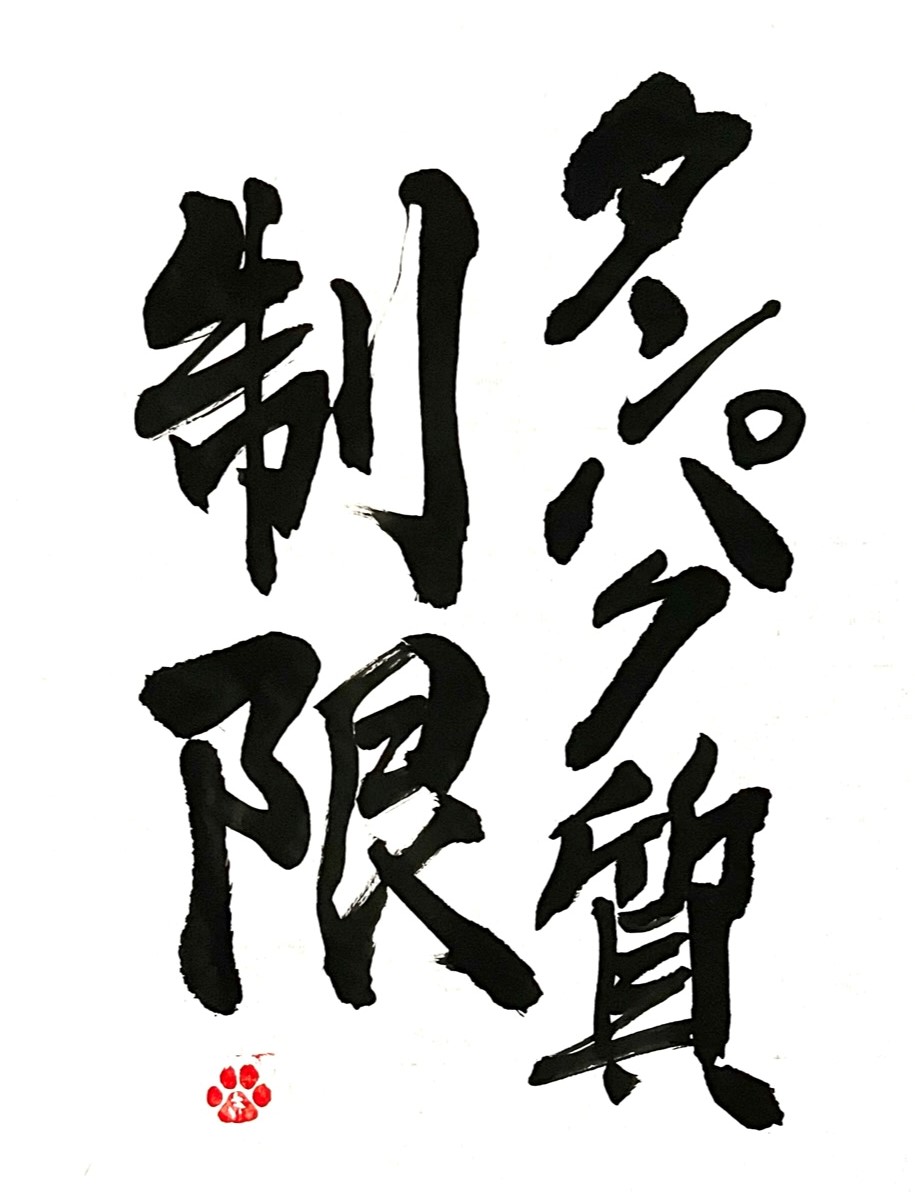 タンパク質
制限